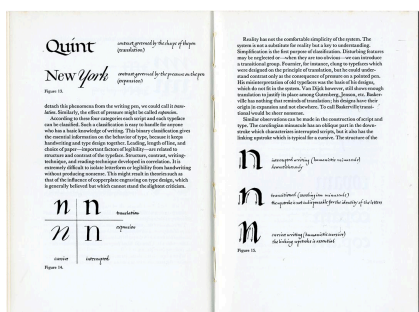 Quint
contrast governed by the shape of the pen
(translation)
New York
contrast governed by the pressure on the pen
(expansion)
Figure 13.
detach this phenomenon from the writing pen, we could call it trans-
lation. Similarly, the effect of pressure might be called expansion.
According to these four categories each script and each typeface
can be classified. Such a classification is easy to handle for anyone
who has a basic knowledge of writing. This binary classification gives
the essential information on the behavior of type, because it keeps
handwriting and type design together. Leading, length of line, and
choice of paper—important factors of legibility—are related to
structure and contrast of the typeface. Structure, contrast, writing-
technique, and reading-technique developed in correlation. It is
extremely difficult to isolate letterform or legibility from handwriting
without producing nonsense. This might result in theories such as
that of the influence of copperplate engraving on type design, which
is generally believed but which cannot stand the slightest criticism.
n n
translation
n n
expansion
cursive interrupted
Figure 14.
Reality has not the comfortable simplicity of the system. The
system is not a substitute for reality but a key to understanding.
Simplification is the first purpose of classification. Disturbing features
may be neglected or—when they are too obvious—we can introduce
a transitional group. Fournier, for instance, clung to typefaces which
were designed on the principle of translation, but he could under-
stand contrast only as the consequence of pressure on a pointed pen.
His misinterpretation of old typefaces was the basis of his designs,
which do not fit in the system. Van Dijck however, still shows enough
translation to justify its place among Gutenberg, Jenson, etc. Basker-
ville has nothing that reminds of translation; his designs have their
origin in expansion and not elsewhere. To call Baskerville transi-
tional would be sheer nonsense.
Similar observations can be made in the construction of script and
type. The carolingian minuscule has no oblique part in the down-
stroke which characterizes interrupted scripts, but it also has the
linking upstroke which is typical for a cursive. The structure of the
n
interrupted writing (humanistic minuscule)
n
transitional (carolingian minuscule)
the upstroke is not indispensable for the identity of the letters
n
cursive writing (humanistic cursive)
the linking upstroke is essential
Figure 15.